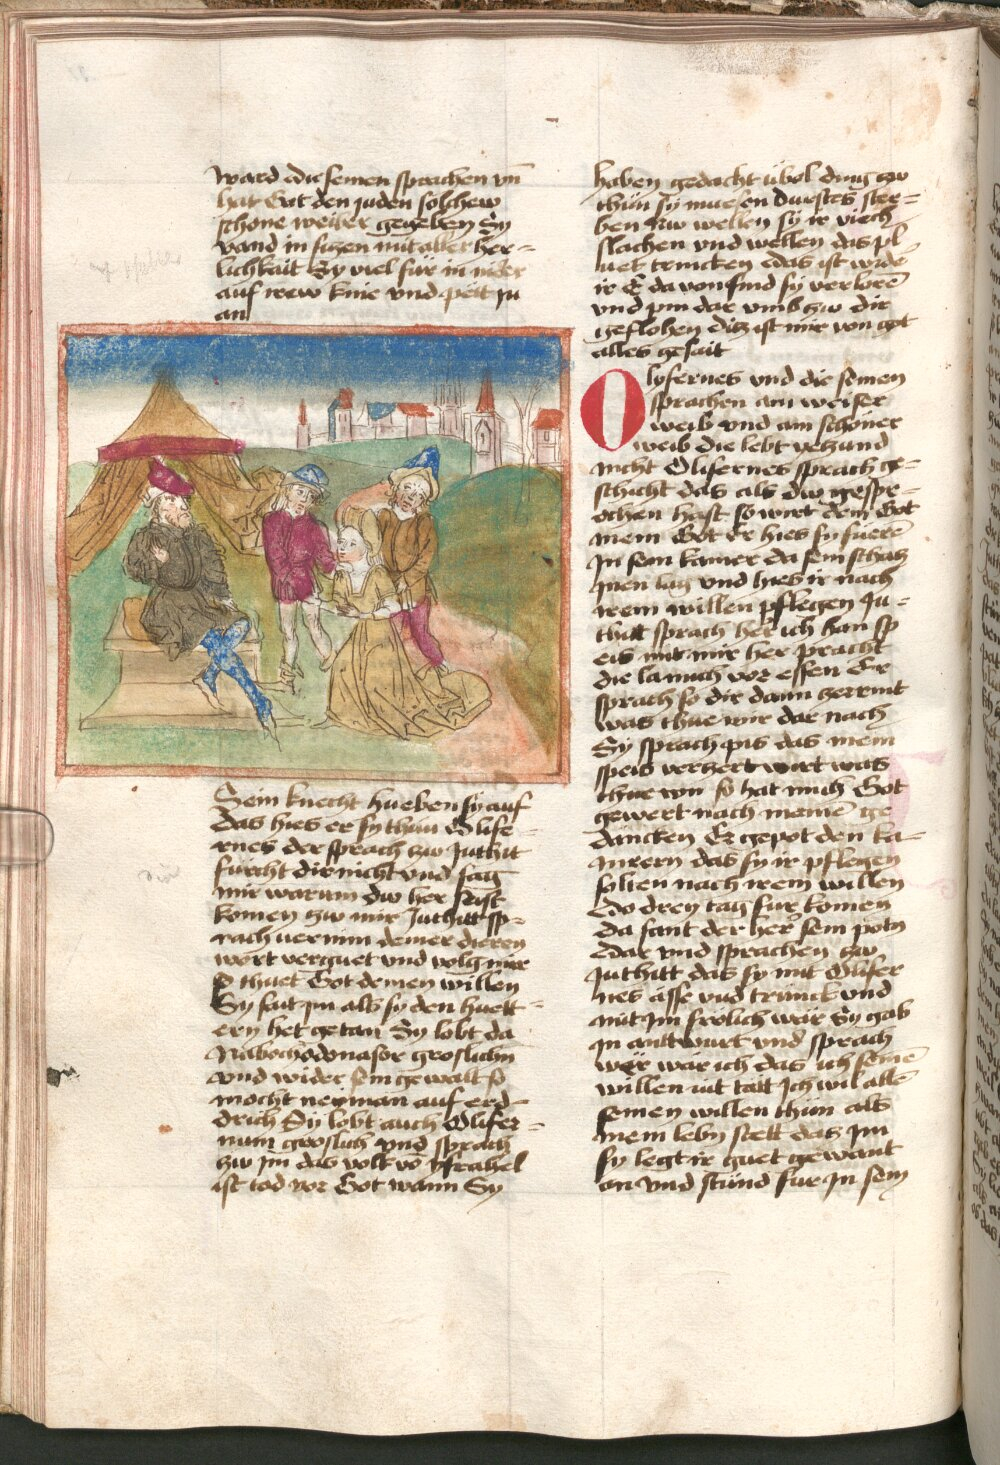 ward die seinen sprachen vn̄
hat Got den juden sölchew
schöne weiber gegeben Sy
vand in siczen mit aller her=
lichkait Sy viel für in nider
auf irew knie vnd pett in
an
Sein knecht hueben sy auf
das hies er sy thün Olife=
rnes der sprach zw Juthit
fürcht dir nicht vnd sag
mir warum dw her seist
komen zw mir Juthitt sp=
rach vernim deiner dieren
wort verguet vnd volg mir
so thuet Got deinen willen
Sy sait im als sy den huett=
ern het getan Sy lobt da
Nabochodonasor groslichn
vnd wider sein gewalt so
mocht neyman auf erd=
drich Sy lobt auch Olifer=
num groslich vnd sprach
zw im das volk vō ysrahel
ist tod vor Got wann Sy
haben gedacht übel ding zw
thün sy muesen durstes ster=
ben Nw wellen sy ir viech
slachen vnd wellen das pl
uet trincken das ist wide
ir E da von sind sy verlorē
vnd pin dar vmb zw dir
geflohen dicz ist mir von got
alles gesait
Olofernes vnd die seinen
sprachen ain weiser
weib vnd ain schöner
weib die lebt yeczund
nicht Olifernes sprach ge=
schicht das als dw gespr=
ochen hast so wirt dein Got
mein Got Er hies sy fuerē
In sein kamer da sein schacz
inen lag vnd hies ir nach
irem willen pflegen Ju=
thitt sprach her ich han sp
eis mit mir her pracht
die la mich vor essen Er
sprach so dir dann zerrint
was thue wir dar nach
Sy sprach pis das mein
speis verzert wirt was
thue wir so hat mich Got
gewert nach meinē ge
dancken Er gepot den ka=
mrern das sy ir pflegen
solten nach irem willen
Do drey tag fur komen
da sant der her sein potn
dar vnd sprachen zw
Juthitt das sy mit Olifer
nes ässe vnd trünck vnd
mit im frölich wär Sy gab
in anttwurt vnd sprach
wer wär ich das ich seinē
willen nit tätt Ich wil allē
seinen willen thün als
mein lebn stett das im
sy legt ir guet gewant
an vnd stünd fur in sein